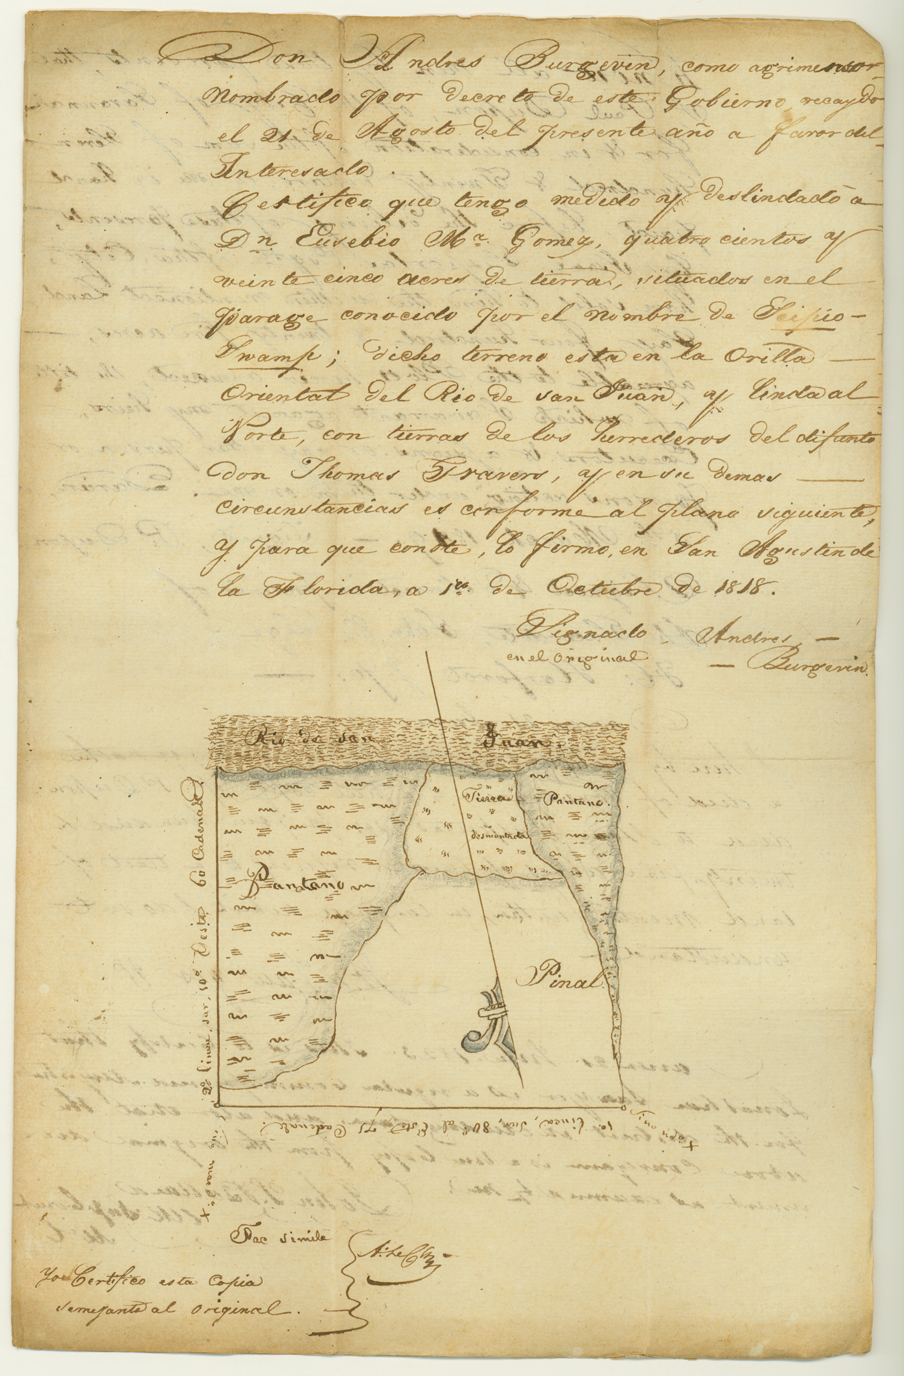 Don Andres Burgevin, como agrimensor
nombrado por decreto de este Gobierno, recaydo
el 21 de Agosto del presente año a favor del
Interesado.
Certifico que tengo medido y deslindado a
Dn. Eusebio Ma. Gomez, quatro cientos y
veinte cinco acres de tierra, situados en el
parage conocido por el nombre de Scipio
Swamp; dicho terreno esta en la Orilla
Oriental del Rio de san Juan, y linda al
Norte, con tierras de los herederos del difunto
don Thomas Travers, y en su demas
circunstancias es conforme al plano siguiente,
y para que conste, lo firmo, en San Agustin de
la Florida, a 1ro. de Octubre de 1818.
Signado Andres
en el Original Burgevin
Rio de san Juan.
Tierra
desmontada
Pantano.
Pantano
Pinal
2a. linea, sur, 10o. Oeste 60 Cadenas.
1a. linea, sur, 80o. al Este 75 Cadenas.
Fac simile
Yo Certifico esta copia
semejante al original.